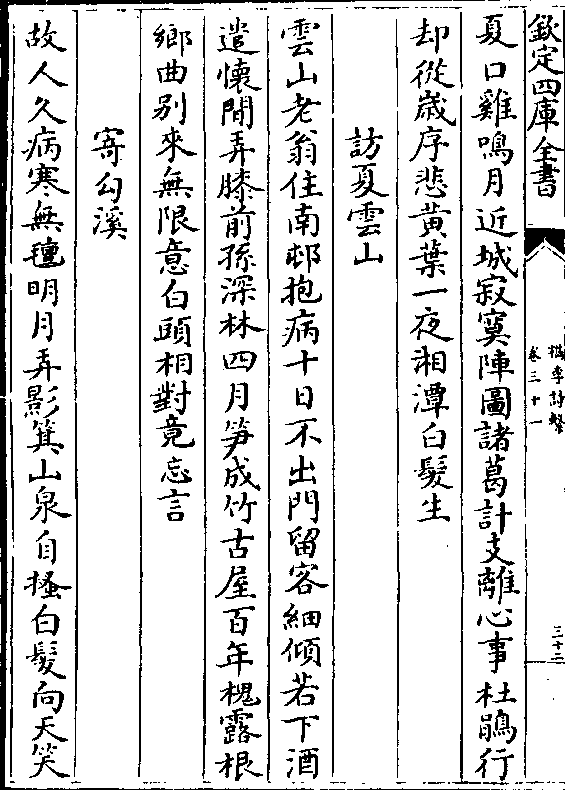 欽定四庫全書
檇李詩繫
卷三十一
三十二
夏口雞鳴月近城寂寞陣圖諸葛計支離心事杜鵑行
却從嵗序悲黃葉一夜湘潭白髮生
訪夏雲山
雲山老翁住南邨抱病十日不出門留客細傾若下酒
遣懷閒弄膝前孫深林四月筍成竹古屋百年槐露根
鄉曲别來無限意白頭相對竟忘言
寄勾溪
故人久病寒無氊明月弄影箕山泉自搔白髮向天笑